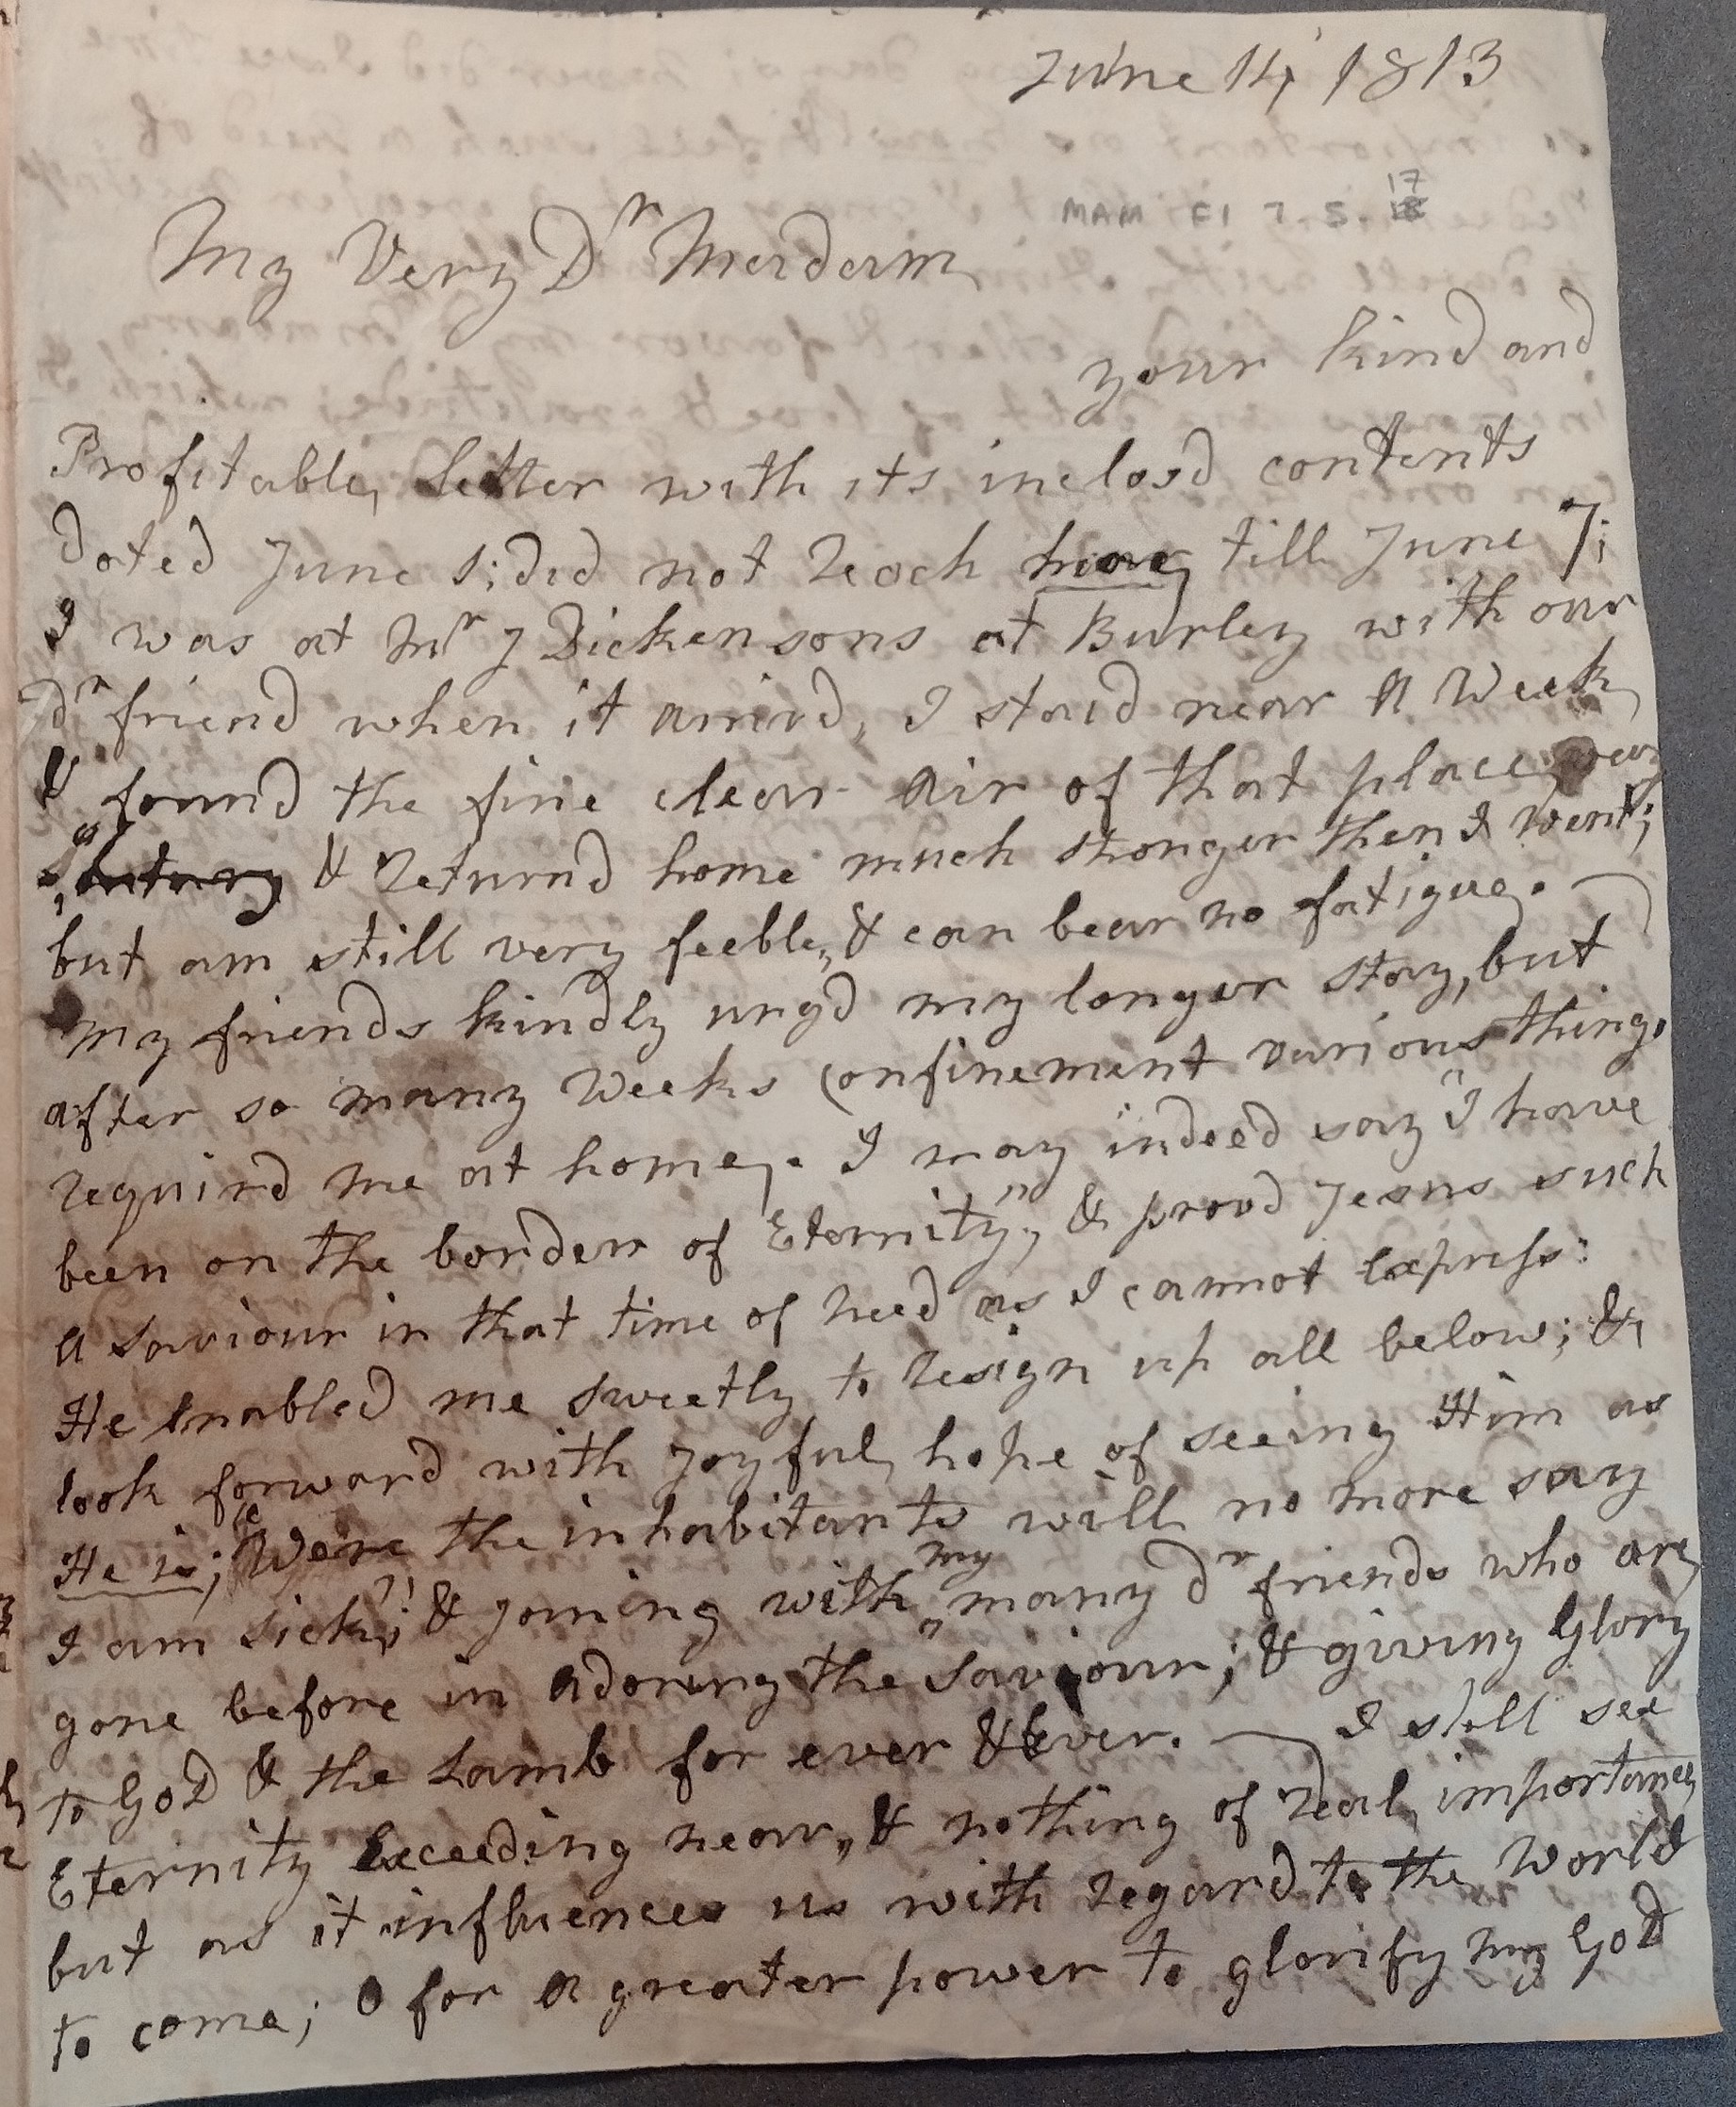 June 14, 1813
MAM Fl 7.5.17
My Very Dr Madam
your kind and
Profitable, Letter with its inclosd contents
dated June 1; did not Reach till June 7;
I was at Mr J Dickensons at Burley with our
dr friend when it arrivd, I staid near A Week,
& found the fine clear Air of that place
& Returnd home much stronger then I Went;
but am still very feeble, & can bear no fatigue. —
My friends kindly urgd my longer stay, but
after so many Weeks Confinement various things
Requird me at home. I may indeed say "I have
been on the border of Eternity", & provd Jesus such
A Saviour in that time of Need as I cannot Express:
He Enabled me sweetly to Resign up all below; &
look forward with Joyful, hope of seeing Him as
He is; Were the inhabitants will no more say
I am sick;" & joining with my many dr friends who are,
gone before in Adoring the Saviour; & giving Glory
to GoD & the Lamb for ever & Ever. — I still see
Eternity Exceeding near, & nothing of Real, importance,
but as it influences us with Regard to the World
to come; O for A greater power to glorify my GoD